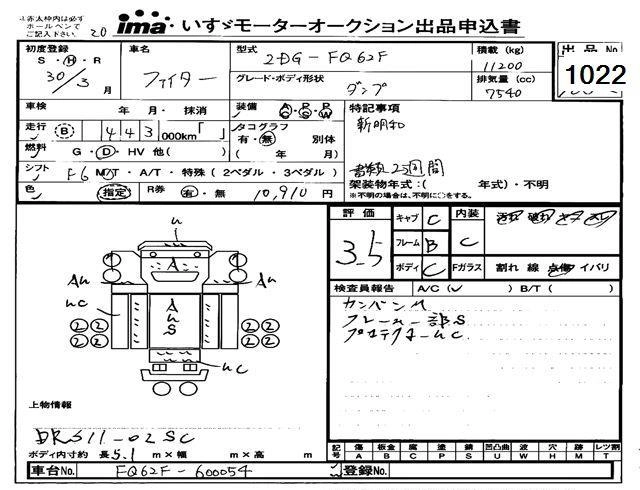 ※赤太枠内は必ず
ホールペンで
ご記入下さい。
20
ima いすゞモーターオークション出品申込書
初度登録
S・H・R
30/3月
車名
ファイター
型式
2DG-FQ62F
グレード・ボディ形状
ダンプ
積載 (kg)
11200
排気量 (cc)
7540
出品No
1022
車検 年 月・抹消
走行 (B) 443 000km「 」
燃料 G・D・HV 他( )
シフト F6 M/T・A/T・特殊(2ペダル・3ペダル)
色 指定 R券 有・無 10,910円
装備 A/C P/S P/W
タコグラフ
有・無 別体
( 年 月)
特記事項
新明和
書類2週間
架装物年式:( 年式)・不明
※不明の場合は、不明に○をする。
評価
3.5
キャブ C
フレーム B
ボディ C
内装 C
Fガラス 割れ 線 点傷 イバリ
検査員報告 A/C(✓) B/T( )
カンバンM
フレーム一部S
プロテクターuc
u
A
Au
Au
uc
A
u
S
uc
2 2 2 2
2 2 2 2
上物情報
DRS11-02SC
ボディ内寸約 長 5.1 m×幅 m×高 m
記号 傷 A 板金 B 腐 C 凹 D 塗 P 錆 S 凹凸曲 U 波 W 穴 H 跡 M レツ割 T
車台No. FQ62F-600054
登録No.